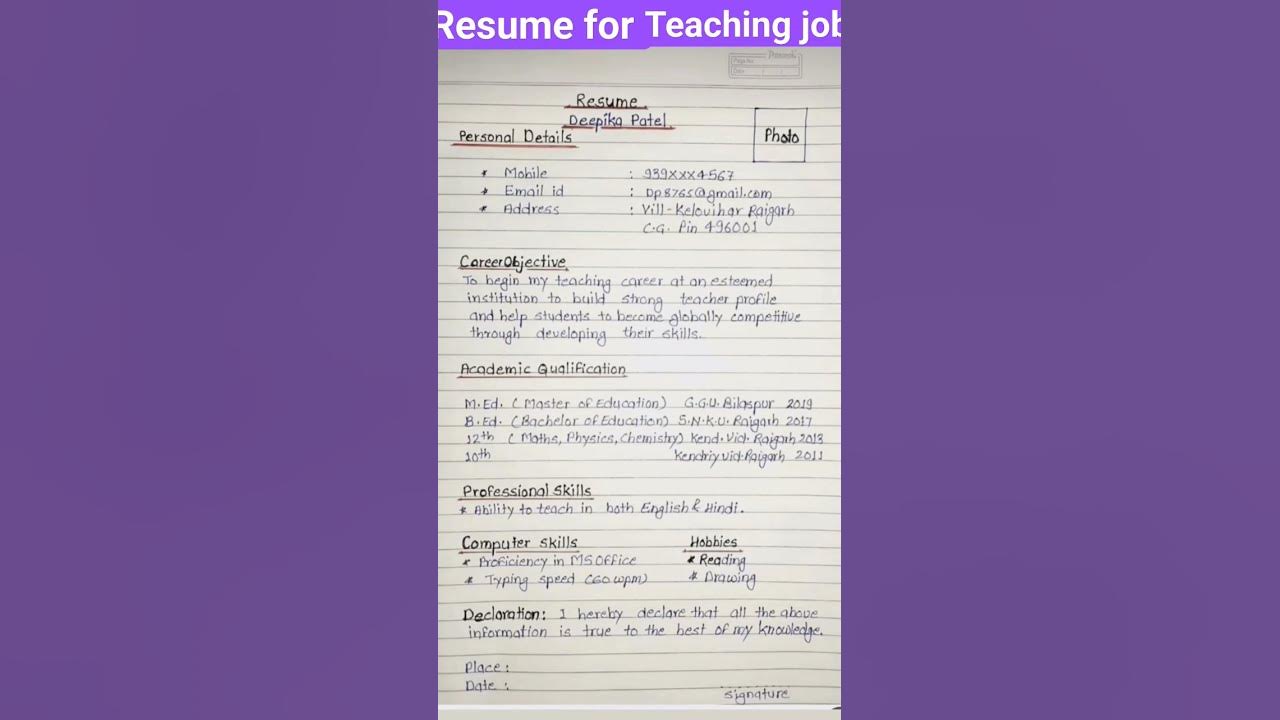 Resume for Teaching job
Page No.
Date
Resume
Deepika Patel
Personal Details
Photo
* Mobile : 939xxx4567
* Email id : Dp8765@gmail.com
* Address : Vill-Kelovihar Raigarh
C.G. Pin 496001
Career Objective
To begin my teaching career at an esteemed
institution to build strong teacher profile
and help students to become globally competitive
through developing their skills.
Academic Qualification
M.Ed. (Master of Education) G.G.U. Bilaspur 2019
B.Ed. (Bachelor of Education) S.N.K.U. Raigarh 2017
12th (Maths, Physics, Chemistry) Kend. Vid. Raigarh 2013
10th Kendriy Vid. Raigarh 2011
Professional Skills
* Ability to teach in both English & Hindi.
Computer Skills Hobbies
* Proficiency in MS Office * Reading
* Typing speed (60 wpm) * Drawing
Declaration: I hereby declare that all the above
information is true to the best of my knowledge.
Place :
Date :
signature